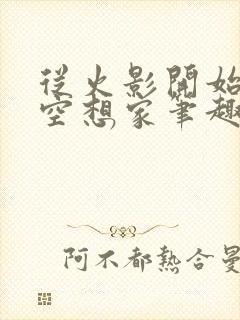 從火影開始
空想家筆趣
阿不都熱合曼